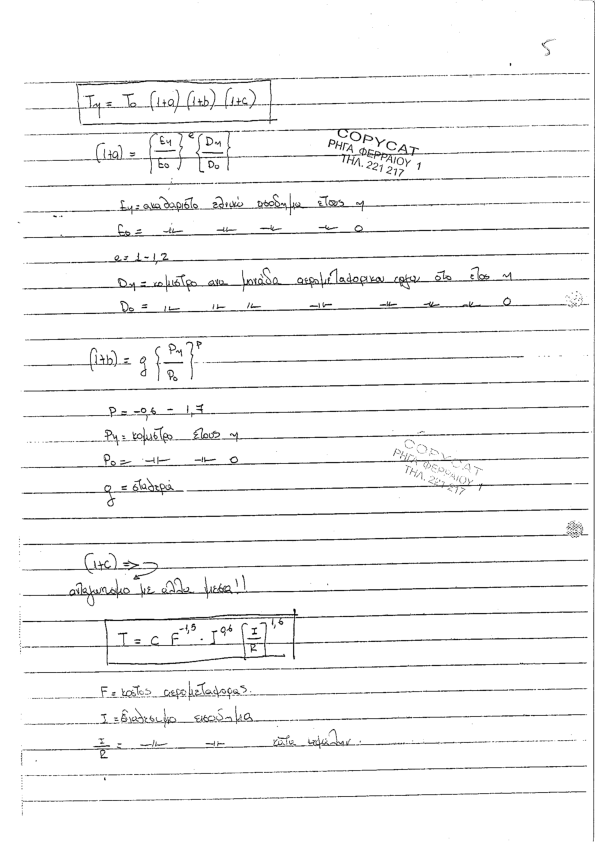 5
Tη = To (1+a) (1+b) (1+c)
(1+a) = {Eη/Eo}^e {Dη/Do}
COPYCAT
ΡΗΓΑ ΦΕΡΡΑΙΟΥ 1
ΤΗΛ. 221 217
Eη = ακαθάριστο εθνικό εισόδημα έτους η
Eo = -//- -//- -//- -//- 0
e = 1 - 1,2
Dη = κόμιστρο ανα μονάδα αερομεταφορικου εργου στο ετος η
Do = -//- -//- -//- -//- -//- -//- -//- 0
(1+b) = g {Pη/Po}^P
P = -0,6 - 1,7
Pη = κόμιστρο έτους η
Po = -//- -//- 0
g = σταθερά
COPYCAT
ΡΗΓΑ ΦΕΡΡΑΙΟΥ 1
ΤΗΛ. 221 217
(1+c) =>
ανταγωνισμο με αλλα μεσα!!
T = c F^-1,5 · I^0,6 [I/R]^1,6
F = κοστος αερομεταφορας.
I = διαθεσιμο εισοδημα
I/R = -//- -//- κατα κεφαλην.